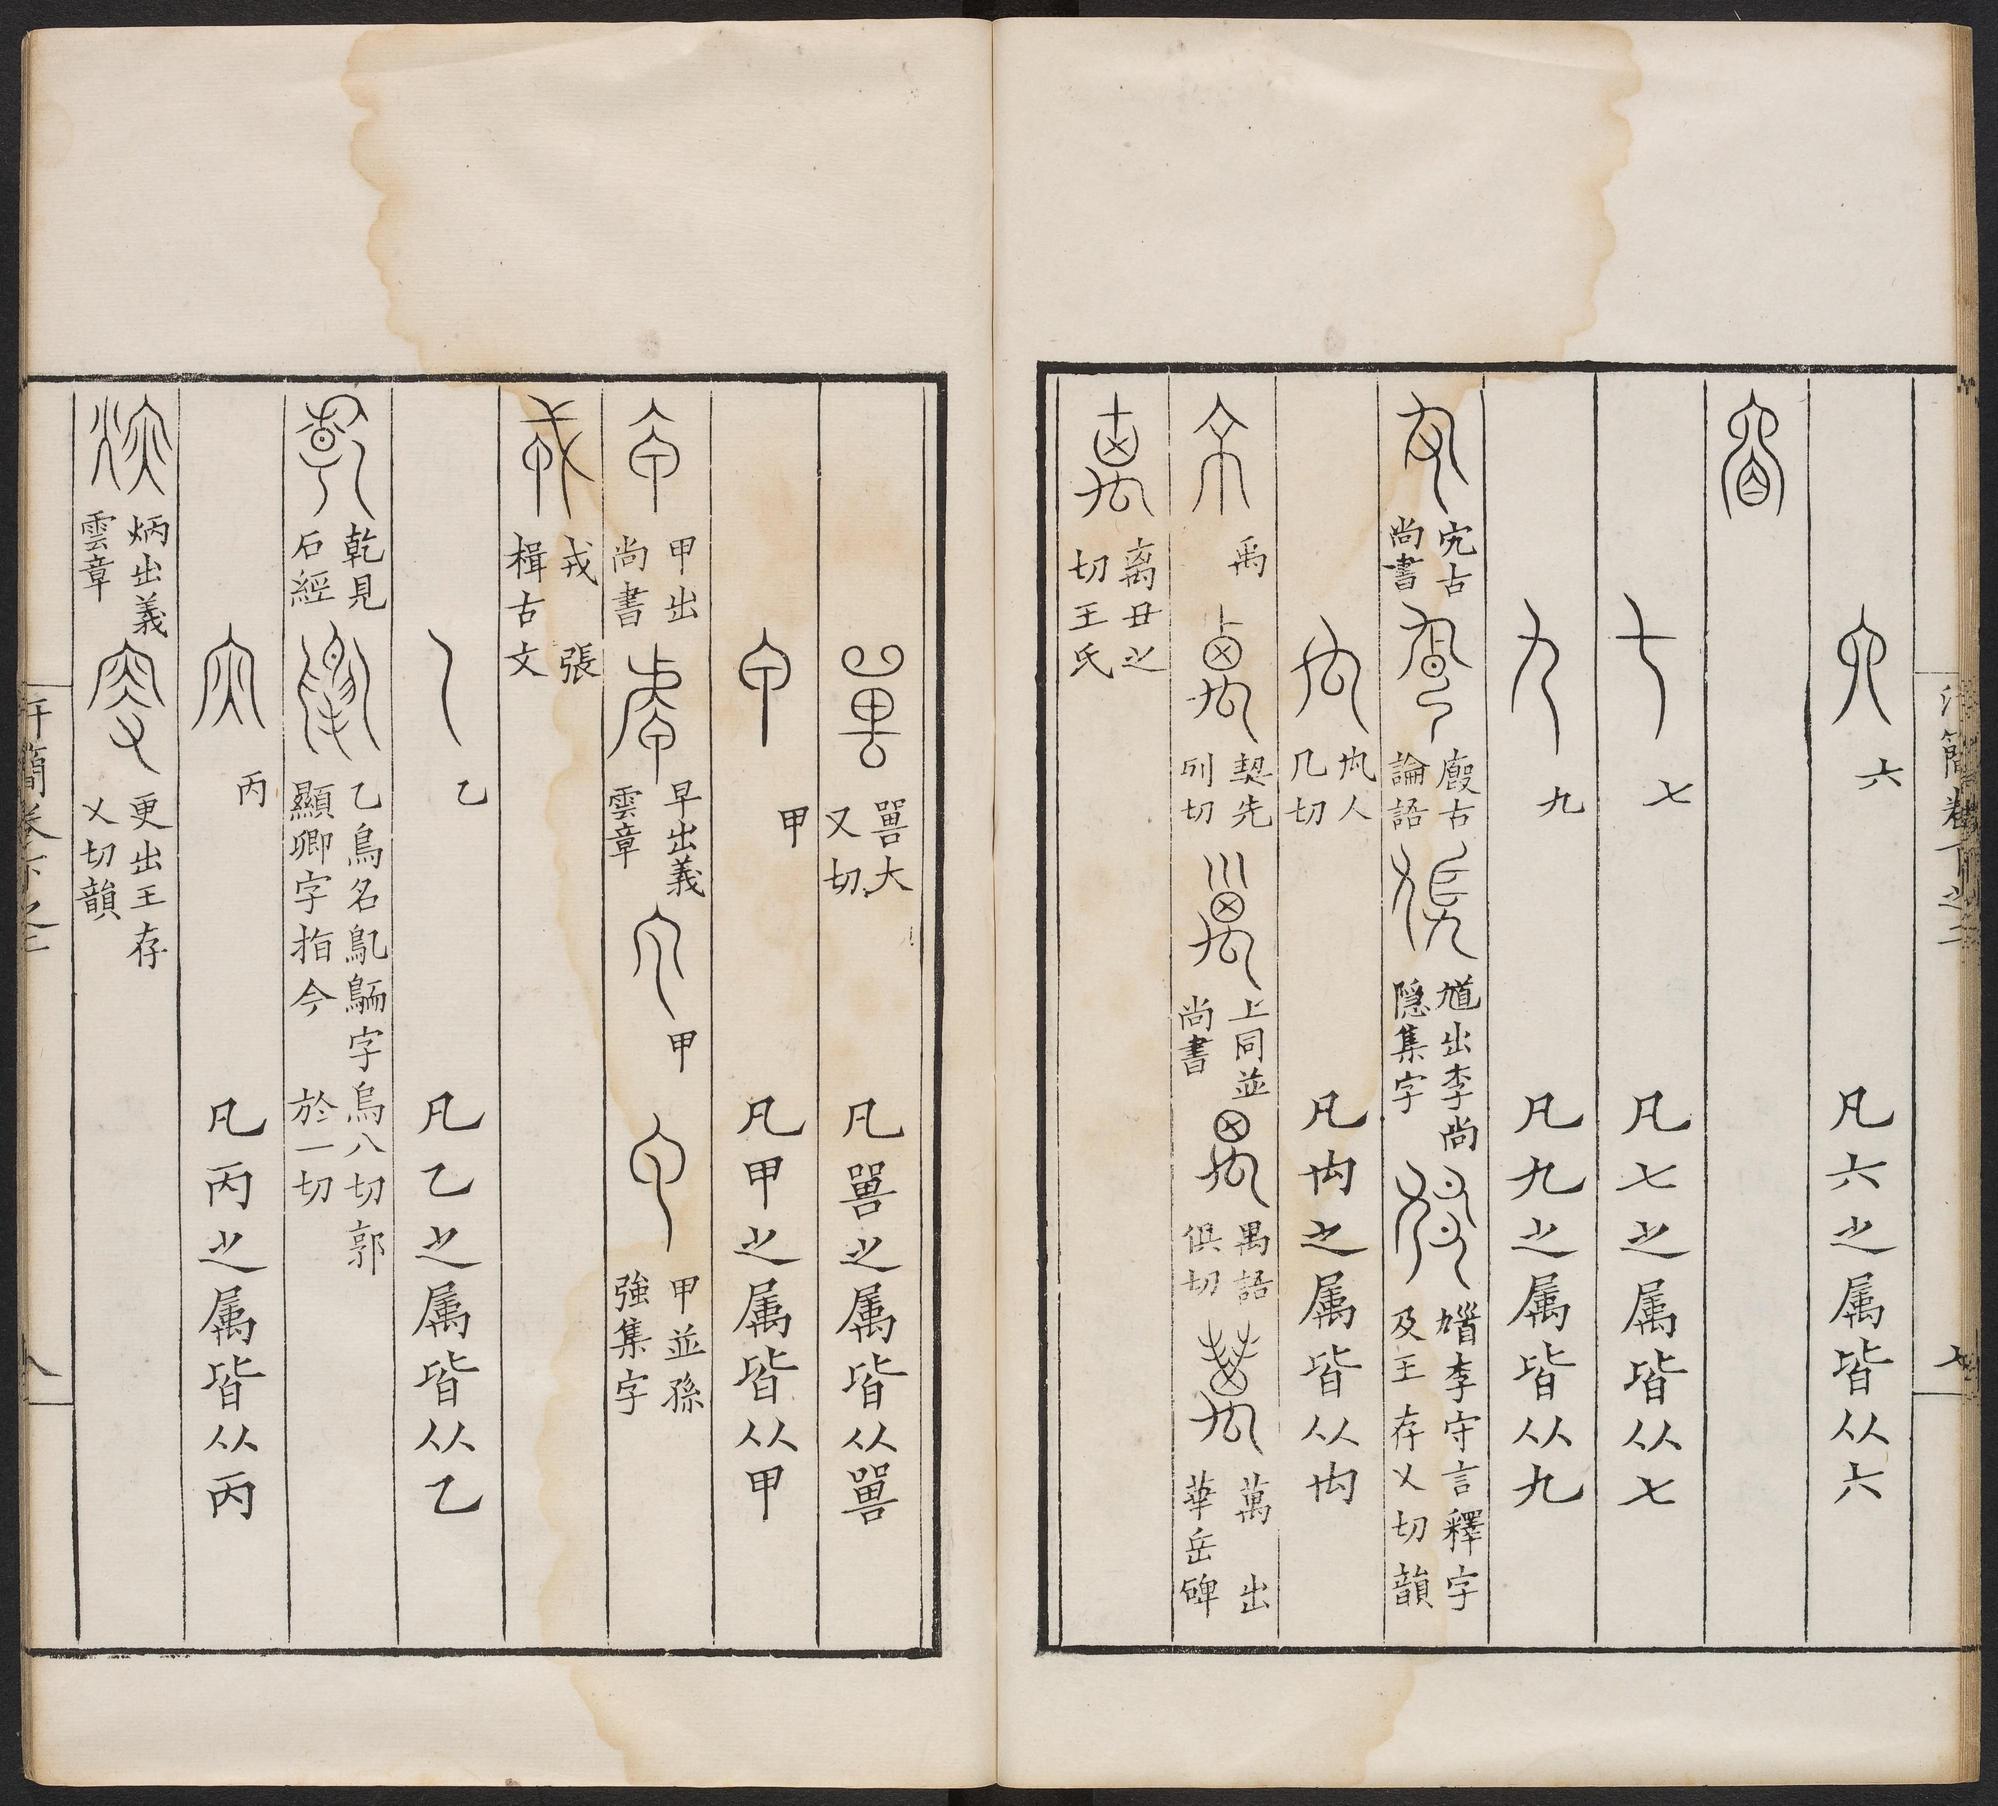 六 凡六之属皆从六
七 凡七之属皆从七
九 凡九之属皆从九
宄古尚書 廏古論語 馗出李尚隱集字 㛴李守言釋字及王存乂切韻
禸人九切 凡禸之属皆从禸
禹 禼先列切 上同並尚書 禺語俱切 萬出華岳碑
离丑之切王氏
汗簡卷下之二 七
嘼大又切 凡嘼之属皆从嘼
甲 凡甲之属皆从甲
甲出尚書 早出義雲章 甲 甲並孫強集字
戎 張楫古文
乙 凡乙之属皆从乙
乾見石經 乙鳥名鳦 字烏八切郭顯卿字指今 於一切
丙 凡丙之属皆从丙
炳出義雲章 更出王存乂切韻
汗簡卷下之二 八